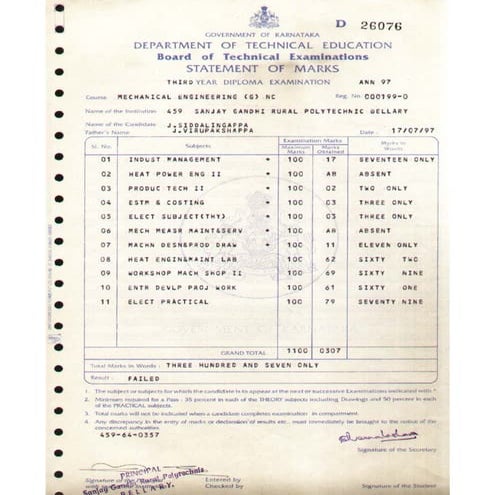 D 26076
GOVERNMENT OF KARNATAKA
DEPARTMENT OF TECHNICAL EDUCATION
Board of Technical Examinations
STATEMENT OF MARKS
THIRD YEAR DIPLOMA EXAMINATION ANN 97
Course MECHANICAL ENGINEERING (G) NC Reg. No. 000199-0
Name of the Institution 459 SANJAY GANDHI RURAL POLYTECHNIC BELLARY
Name of the Candidate J.SIDDALINGAPPA
Father's Name J.VIRUPAKSHAPPA Date : 17/07/97
Sl. No. Subjects Examination Marks Maximum Marks Marks Obtained Marks in Words
01 INDUST MANAGEMENT * 100 17 SEVENTEEN ONLY
02 HEAT POWER ENG II * 100 AB ABSENT
03 PRODUC TECH II * 100 02 TWO ONLY
04 ESTM & COSTING * 100 03 THREE ONLY
05 ELECT SUBJECT(THY) * 100 03 THREE ONLY
06 MECH MEASR MAINT&SERV * 100 AB ABSENT
07 MACHN DESN&PROD DRAW * 100 11 ELEVEN ONLY
08 HEAT ENGIN&MAINT LAB 100 62 SIXTY TWO
09 WORKSHOP MACH SHOP II 100 69 SIXTY NINE
10 ENTR DEVLP PROJ WORK 100 61 SIXTY ONE
11 ELECT PRACTICAL 100 79 SEVENTY NINE
GOVERNMENT OF KARNATAKA
GRAND TOTAL 1100 0307
Total Marks in Words : THREE HUNDRED AND SEVEN ONLY
Result : FAILED
1. The subject or subjects for which the candidate is to appear at the next or successive Examinations indicated with *.
2. Minimum required for a Pass : 35 percent in each of the THEORY subjects including Drawings and 50 percent in each
of the PRACTICAL subjects.
3. Total marks will not be indicated when a candidate completes examination in compartment.
4. Any discrepancy in the entry of marks or declaration of results etc... must immediately be brought to the notice of the
concerned authorities.
459-64-0357
Signature of the Secretary
PRINCIPAL
Sanjay Gandhi Rural Polytechnic
BELLARY.
Entered by
Checked by
Signature of the Student